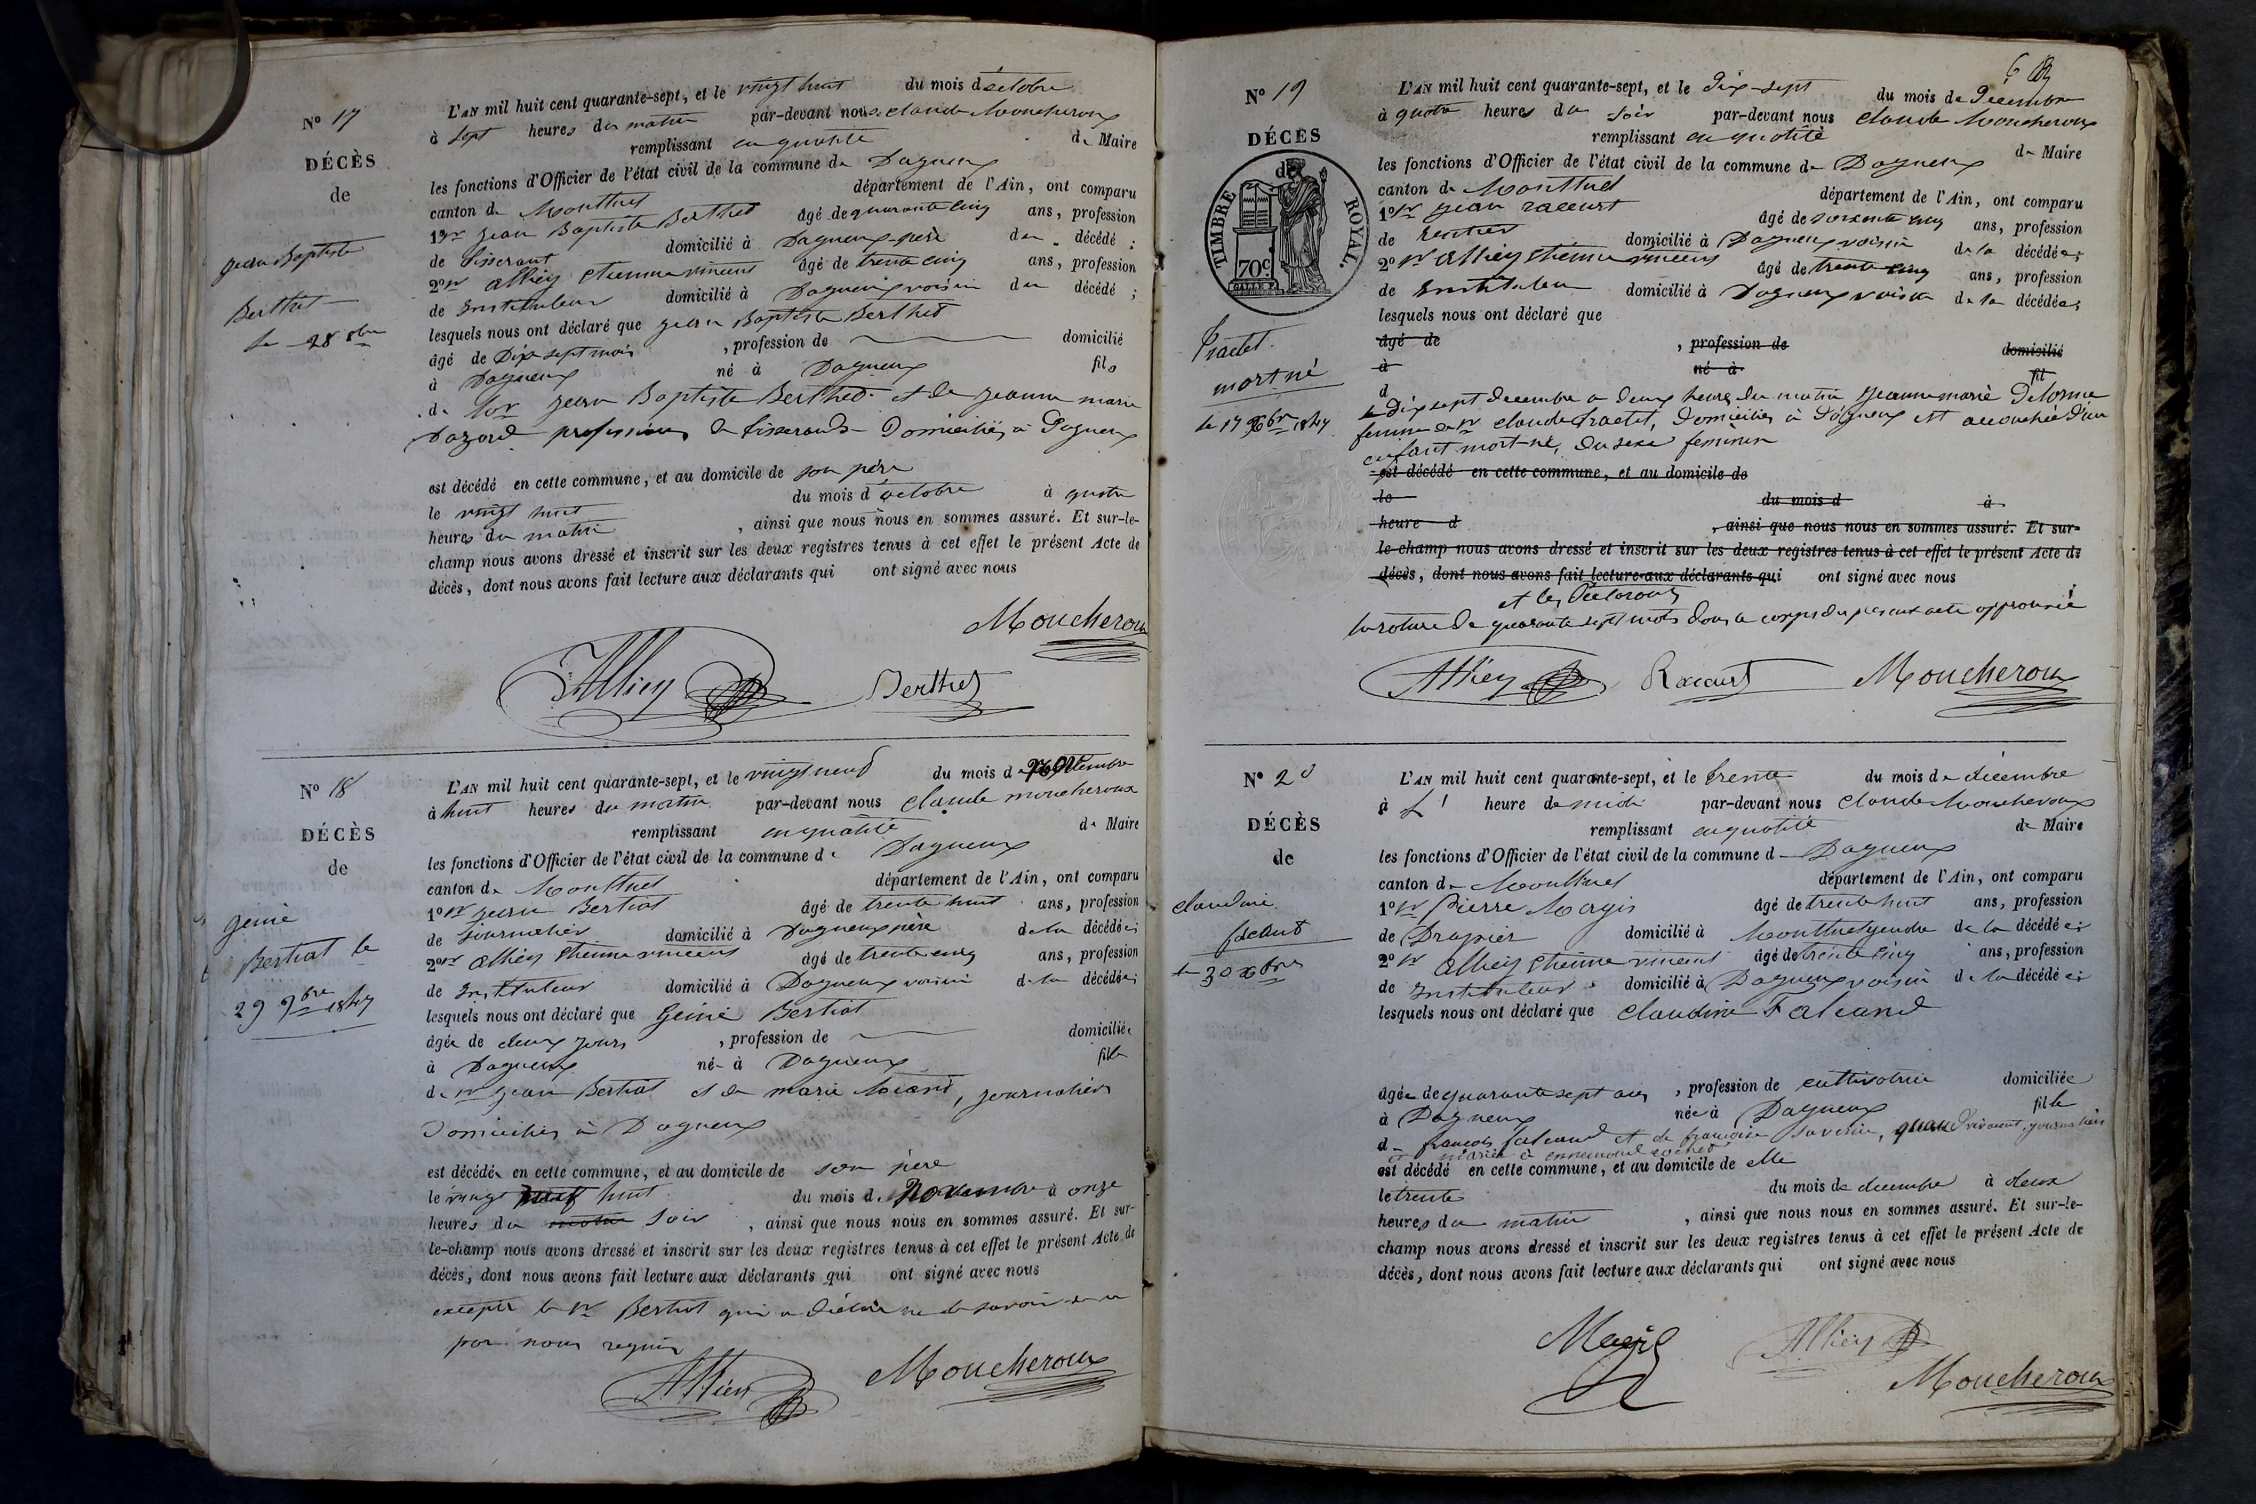 N° 17
DÉCÈS
de
Jean Baptiste
Berthet
le 28 8bre
L'AN mil huit cent quarante-sept, et le vingt huit du mois d'octobre
à sept heures du matin par-devant nous claude Moucheroux
remplissant en qualité de Maire
les fonctions d'Officier de l'état civil de la commune de Dagneux
canton de Montluel département de l'Ain, ont comparu
1° sr jean Baptiste Berthet âgé de quarante cinq ans, profession
de tisserant domicilié à Dagneux père du décédé ;
2° sr Alliey etienne vincent âgé de trente cinq ans, profession
de Instituteur domicilié à Dagneux voisin du décédé ;
lesquels nous ont déclaré que jean Baptiste Berthet
âgé de Dix sept mois , profession de domicilié
à Dagneux né à Dagneux fils
de sr jean Baptiste Berthet et de jeanne marie
Dazord profession de tisserands Domiciliés à Dagneux
est décédé en cette commune, et au domicile de son père
le vingt huit du mois d'octobre à quatre
heures du matin , ainsi que nous nous en sommes assuré. Et sur-le-
champ nous avons dressé et inscrit sur les deux registres tenus à cet effet le présent Acte de
décès, dont nous avons fait lecture aux déclarants qui ont signé avec nous
Moucheroux
Alliey Berthet
N° 18
DÉCÈS
de
Génie
Bertiat le
29 9bre 1847
L'AN mil huit cent quarante-sept, et le vingt neuf du mois de Novembre
à huit heures du matin par-devant nous claude moucheroux
remplissant en qualité de Maire
les fonctions d'Officier de l'état civil de la commune de Dagneux
canton de Montluel département de l'Ain, ont comparu
1° sr jean Bertiat âgé de trente huit ans, profession
de journalier domicilié à Dagneux père de la décédée ;
2° sr Alliey etienne vincent âgé de trente cinq ans, profession
de Instituteur domicilié à Dagneux voisin de la décédée ;
lesquels nous ont déclaré que Génie Bertiat
âgée de deux jours , profession de domiciliée
à Dagneux née à Dagneux fille
de sr jean Bertiat et de marie , journaliers
Domiciliés à Dagneux
est décédée en cette commune, et au domicile de son père
le vingt neuf huit du mois de Novembre à onze
heures du matin soir , ainsi que nous nous en sommes assuré. Et sur-
le-champ nous avons dressé et inscrit sur les deux registres tenus à cet effet le présent Acte de
décès, dont nous avons fait lecture aux déclarants qui ont signé avec nous
excepté le sr Bertiat qui a déclaré ne le savoir de ce
par nous requis
Alliey Moucheroux
N° 19
DÉCÈS
de
TIMBRE ROYAL.
70c
Practet
mort né
le 17 Xbre 1847
L'AN mil huit cent quarante-sept, et le Dix-sept du mois de Décembre
à quatre heures du soir par-devant nous claude Moucheroux
remplissant en qualité de Maire
les fonctions d'Officier de l'état civil de la commune de Dagneux
canton de Montluel département de l'Ain, ont comparu
1° sr jean racourt âgé de soixante cinq ans, profession
de rentier domicilié à Dagneux voisin de la décédée ;
2° sr Alliey etienne vincent âgé de trente cinq ans, profession
de Instituteur domicilié à Dagneux voisin de la décédée ;
lesquels nous ont déclaré que
âgé de , profession de domicilié
à né à fil
d
le Dix sept decembre a deux heures du matin jeanne marie Delorme
femme de sr claude Practet, Domiciliés à Dagneux est accouchée d'un
enfant mort-né, du sexe feminin
est décédé en cette commune, et au domicile de
le du mois d à
heure d , ainsi que nous nous en sommes assuré. Et sur-
le-champ nous avons dressé et inscrit sur les deux registres tenus à cet effet le présent Acte de
décès, dont nous avons fait lecture aux déclarants qui ont signé avec nous
et les Déclarants
la rature de quarante sept mots dans le corps du present acte approuvée
Alliey Racourt Moucheroux
N° 20
DÉCÈS
de
claudine
falcand
le 30 Xbre
L'AN mil huit cent quarante-sept, et le trente du mois de décembre
à heure de midi par-devant nous claude Moucheroux
remplissant en qualité de Maire
les fonctions d'Officier de l'état civil de la commune de Dagneux
canton de Montluel département de l'Ain, ont comparu
1° sr Pierre Magis âgé de trente huit ans, profession
de Drapier domicilié à Montluel gendre de la décédée ;
2° sr Alliey etienne vincent âgé de trente cinq ans, profession
de Instituteur domicilié à Dagneux voisin de la décédée ;
lesquels nous ont déclaré que claudine Falcand
âgée de quarante sept ans , profession de cultivatrice domiciliée
à Dagneux née à Dagneux fille
de françois falcand et de françoise , quand vivaient journaliers
et mariée à
est décédé en cette commune, et au domicile de elle
le trente du mois de decembre à deux
heures du matin , ainsi que nous nous en sommes assuré. Et sur-le-
champ nous avons dressé et inscrit sur les deux registres tenus à cet effet le présent Acte de
décès, dont nous avons fait lecture aux déclarants qui ont signé avec nous
Magis Alliey
Moucheroux